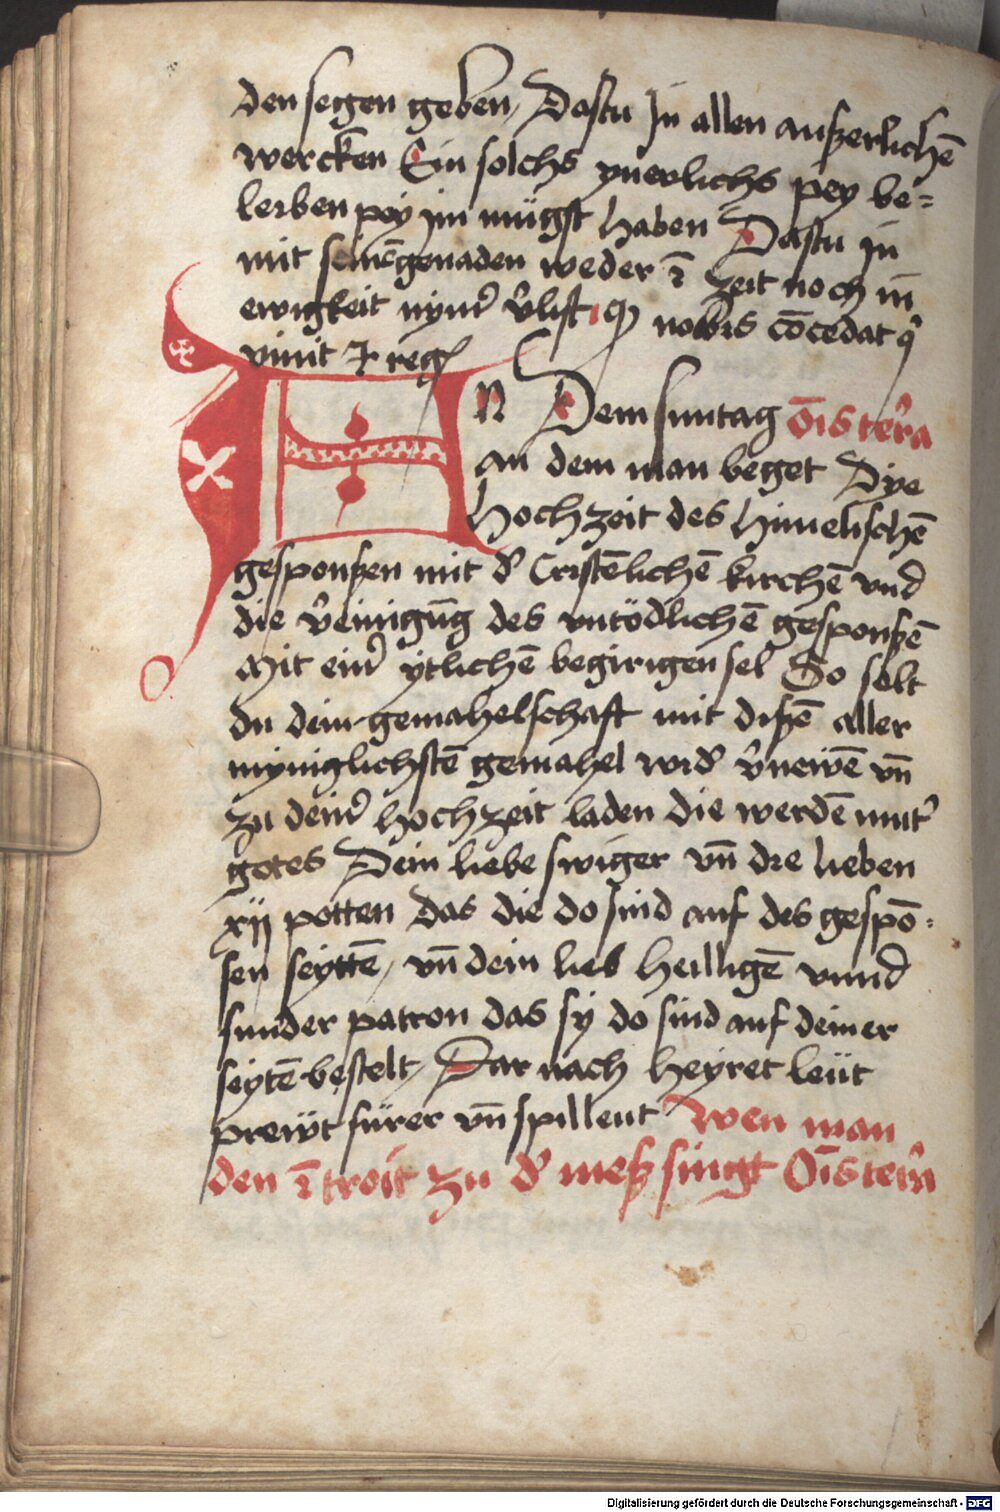 den segen geben / Dastu Jn allen außerlichē
wercken Ein solchs ynerlichs pey be=
leiben pey jm mügst haben Dastu jn
mit seinē genaden weder ī zeit noch in̄
ewigkeit nym̄ v̄list q nobis cōcedat q
viuit & reg
AN Dem suntag Ōis terra
an dem man beget Dye
hochzeit des himelischē
gesponßen mit d' Cristēlichē kirchē vnd
die v̄einigūg des vntödlichē gesponßē
Mit ein' ytlichē begirigen sel So solt
du dein gemahelschaft mit dißē aller
myniglichstē gemahel wid' v̄newē vn̄
zu dein' hochzeit laden die werdē mut'
gotes Dein liebe swiger vn̄ die lieben
xij potten das die do sind auf des gespō=
sen seyttē / vn̄ dein lieb heilligē vnnd
sunder patron das sy do sind auf deiner
seytē bestelt / Dar nach heyret leüt
prewt fürer vn̄ spilleut Wen man
den ītroit zu d' meß singt Ōis terra
Digitalisierung gefördert durch die Deutsche Forschungsgemeinschaft - DFG